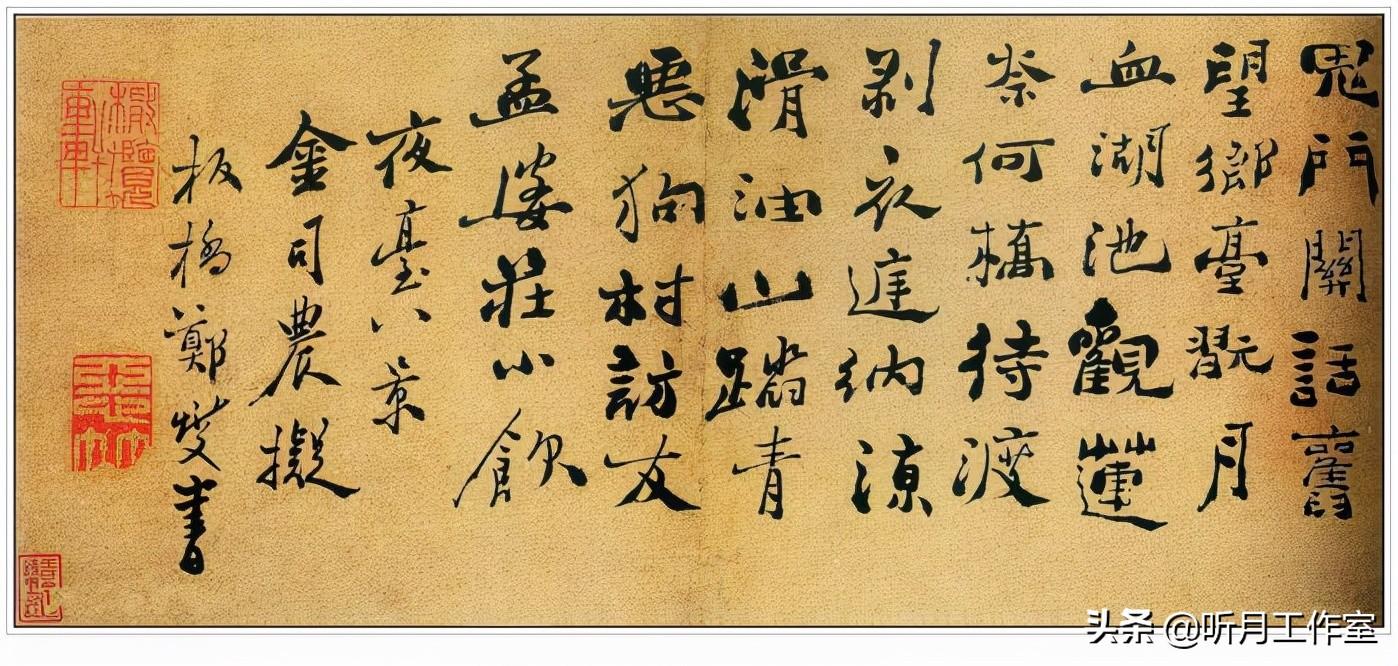 鬼門關話舊
望鄉臺翫月
血湖池觀蓮
柰何橋待渡
剥衣㢠納涼
滑油山踏青
惡狗村訪友
孟婆莊小飲
夜臺八景
金司農擬
板橋鄭燮書
头条 @听月工作室